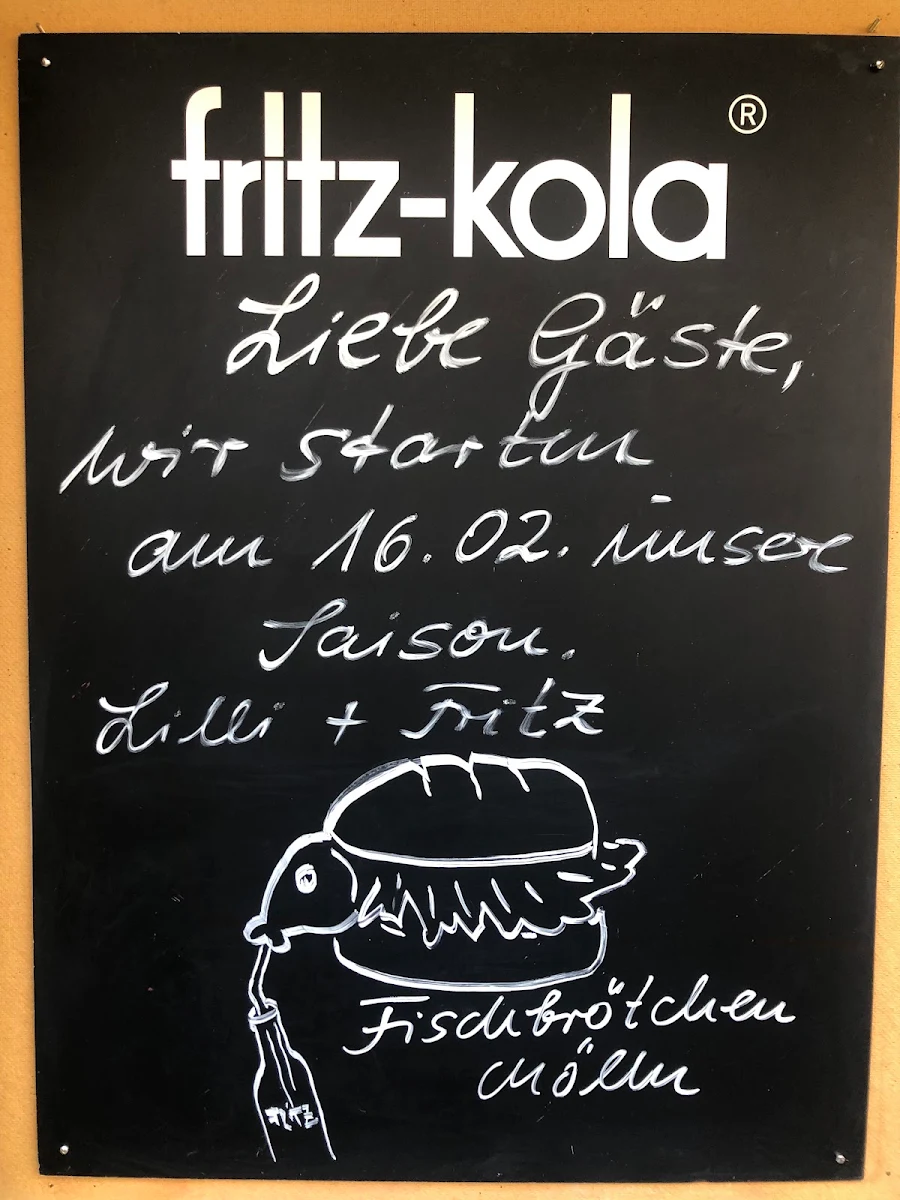 fritz-kola ®
Liebe Gäste,
wir starten
am 16.02. unsere
Saison.
Lilli + Fritz
Fischbrötchen
Mölln
FRITZ